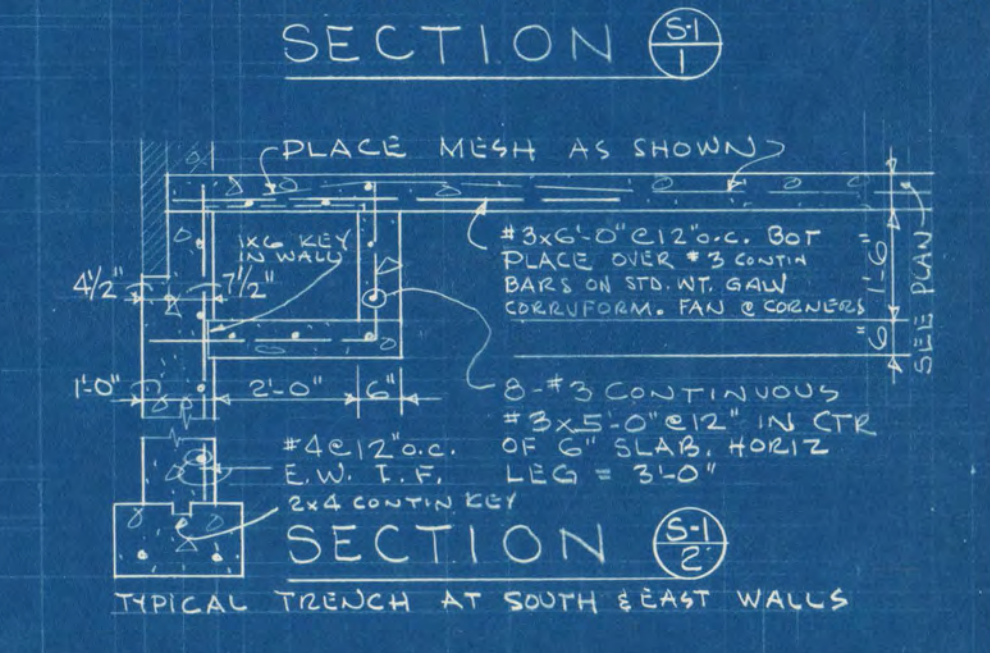 SECTION S-1
1
PLACE MESH AS SHOWN
1X6 KEY
IN WALL
#3x6'-0"@12"o.c. BOT
PLACE OVER #3 CONTIN
BARS ON STD. WT. GALV
CORRUFORM. FAN @ CORNERS
4½"
7½"
1'-6"
6"
SEE PLAN
1'-0"
2'-0"
6"
8-#3 CONTINUOUS
#3x5'-0"@12" IN CTR
OF 6" SLAB. HORIZ
LEG = 3'-0"
#4@12"o.c.
E.W. I.F.
2x4 CONTIN KEY
SECTION S-1
2
TYPICAL TRENCH AT SOUTH & EAST WALLS